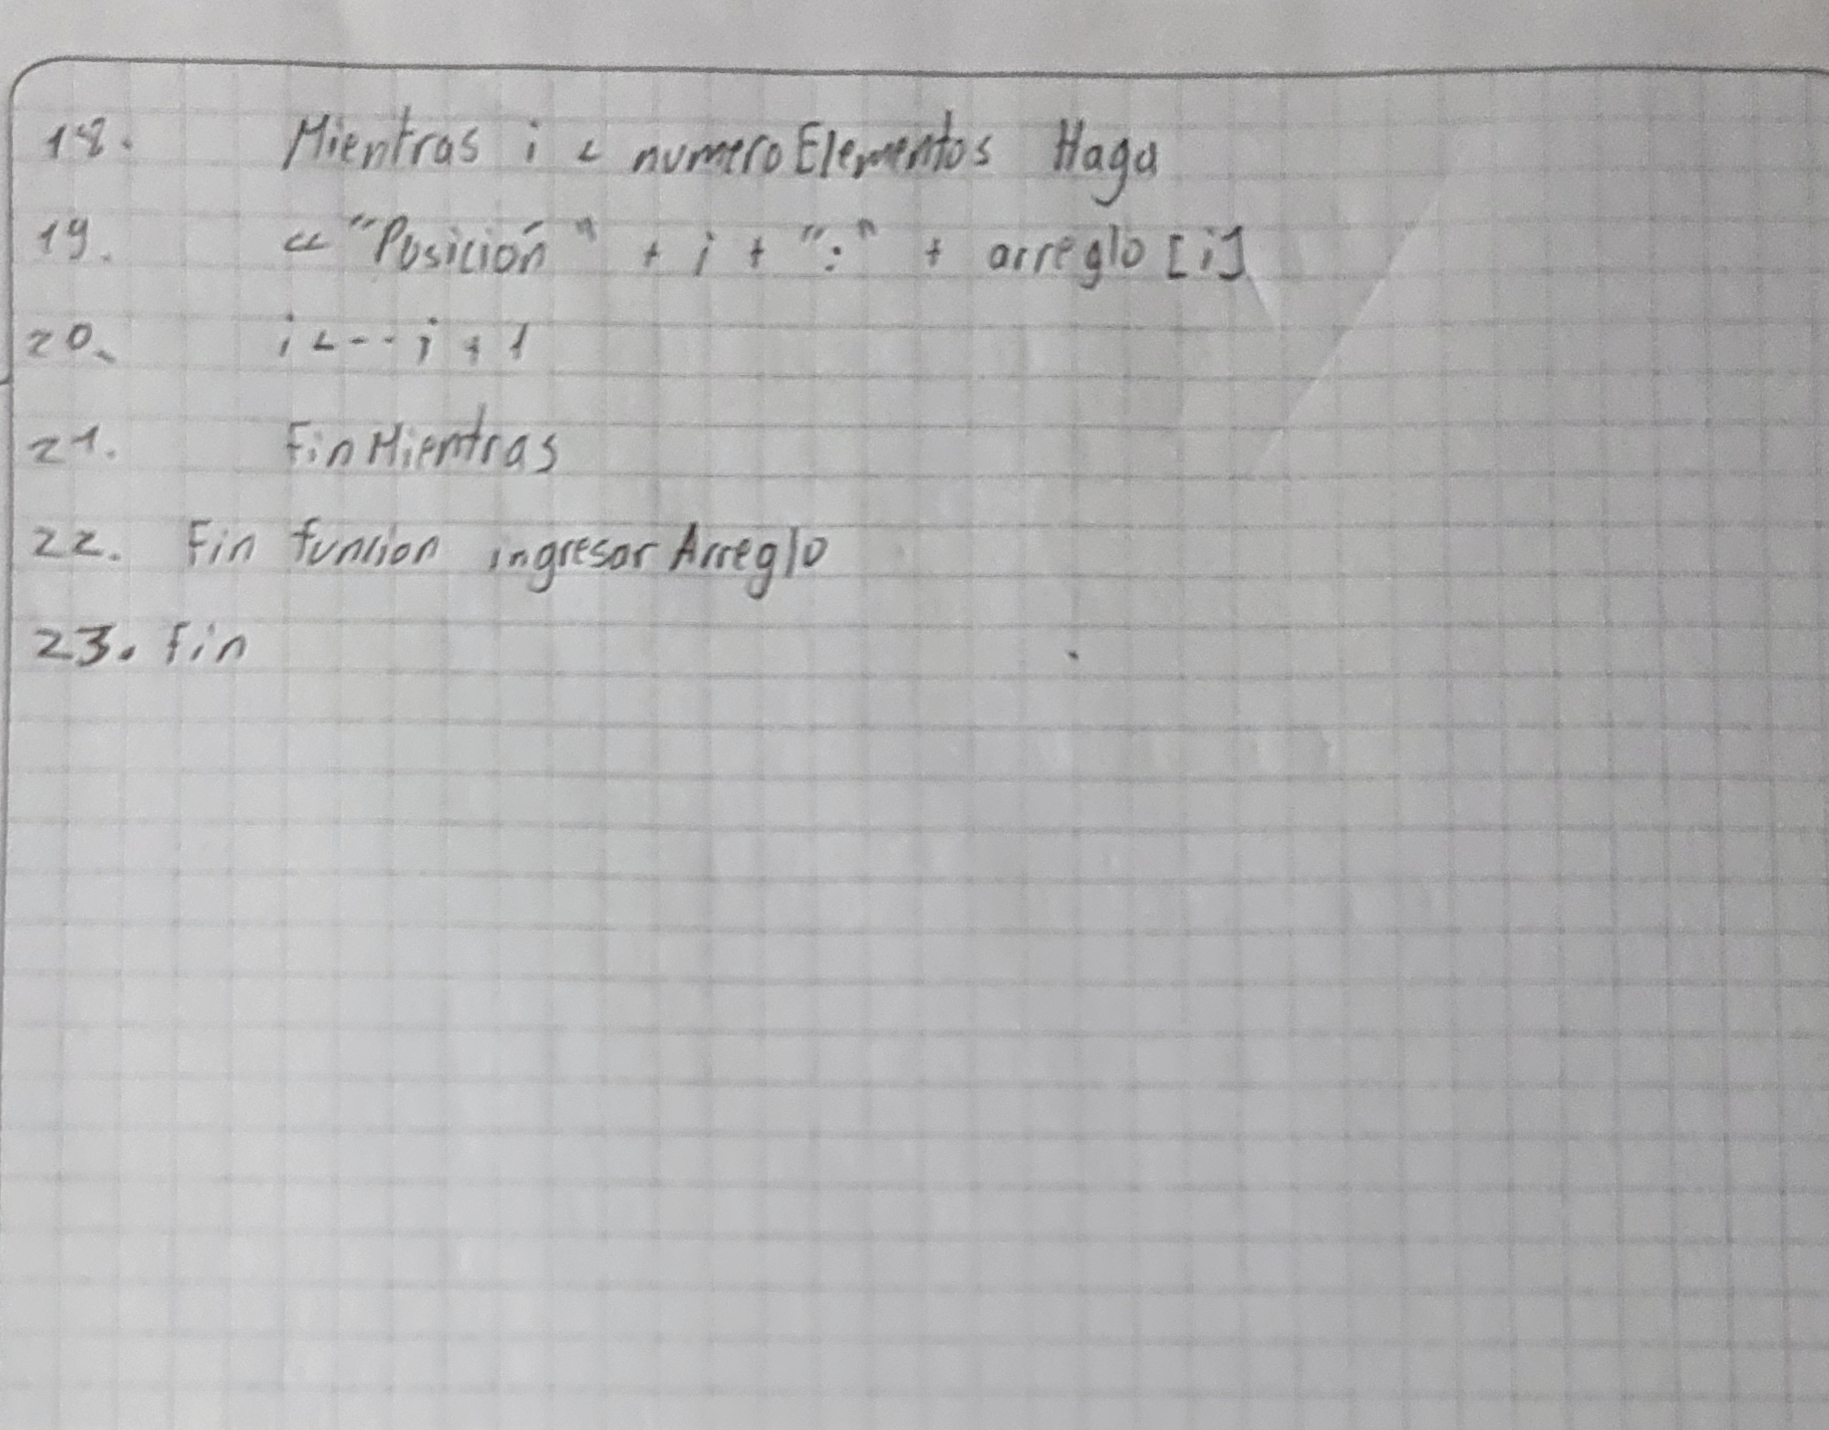 18. Mientras i < numeroElementos Haga
19. << "Posición" + i + ":" + arreglo [i]
20. i <-- i + 1
21. Fin Mientras
22. Fin funcion ingresar Arreglo
23. Fin